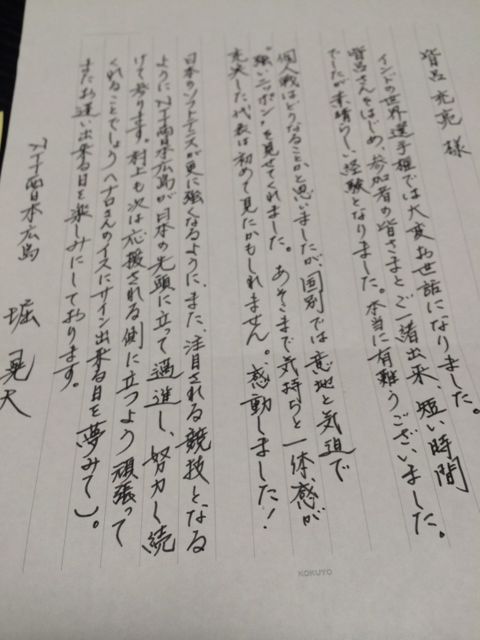 皆呂充亮 様
インドの世界選手権では大変お世話になりました。
皆呂さんをはじめ、参加者の皆さまとご一緒出来、短い時間
でしたが素晴らしい経験となりました。本当に有難うございました。
個人戦はどうなることかと思いましたが、国別では意地と気迫で
"強いニッポン"を見せてくれました。あそこまで気持ちと一体感が
充実した代表は初めて見たかもしれません。感動しました!
日本のソフトテニスが更に強くなるように、また、注目される競技となる
ようにNTT西日本広島が日本の先頭に立って邁進し、努力し続
けて参ります。村上も次は応援される側に立つよう頑張って
くれることでしょう(ヘナロさんのイスにサイン出来る日を夢みて)。
またお逢い出来る日を楽しみにしております。
NTT西日本広島 堀 晃大
KOKUYO